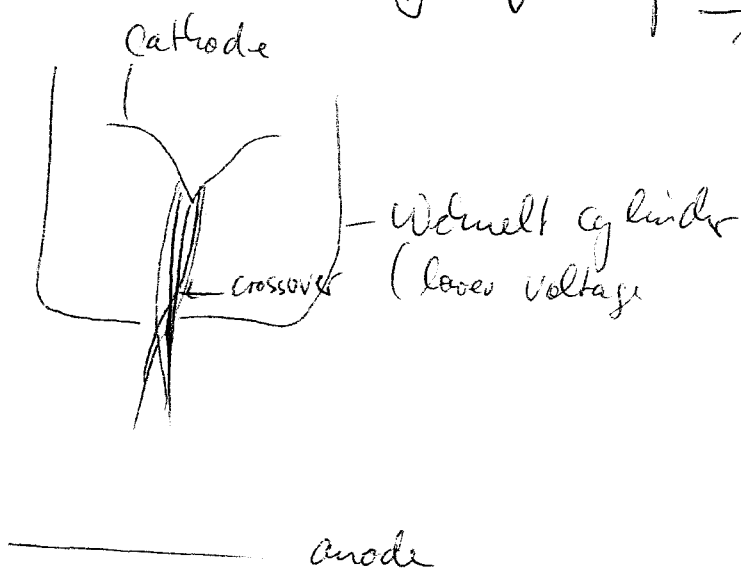 Cathode
Wehnelt cylinder
(lower voltage
crossover
anode